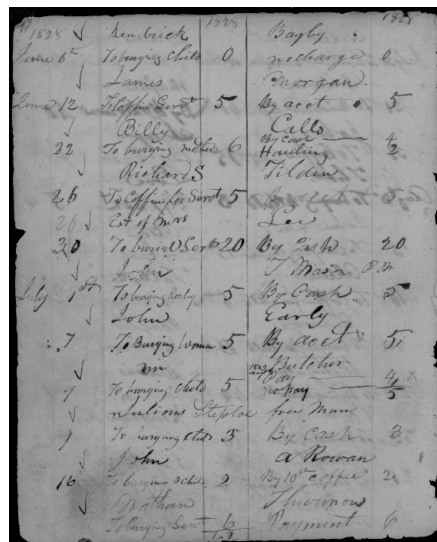 1828 Kendrick 1828 Bagby 1828
June 6th To burying Child 0 no charge 0
James Morgan
June 12 To Coffin Servt 5 By acct 5
Billy Calls
22 To burying 6 By Cash 4
Hauling 2
Richards Tilden
26 To Coffin for Servt 5
26 Est of Mrs Lee
30 To burial Servt 20 By Cash 20
John T Mason
July 1st To burying 5 By Cash 5
John Early
7 To Burying Woman 5 By acct 5
Wm Butcher
9 To burying Child 5 Pay 4
no pay
Julious Steptoe free Man
9 To burying Child 3 By Cash 3
John A Rowan
16 To burying a Child 2 By 2
Nathan Thurmon
To burying Servt 6 Payment 6